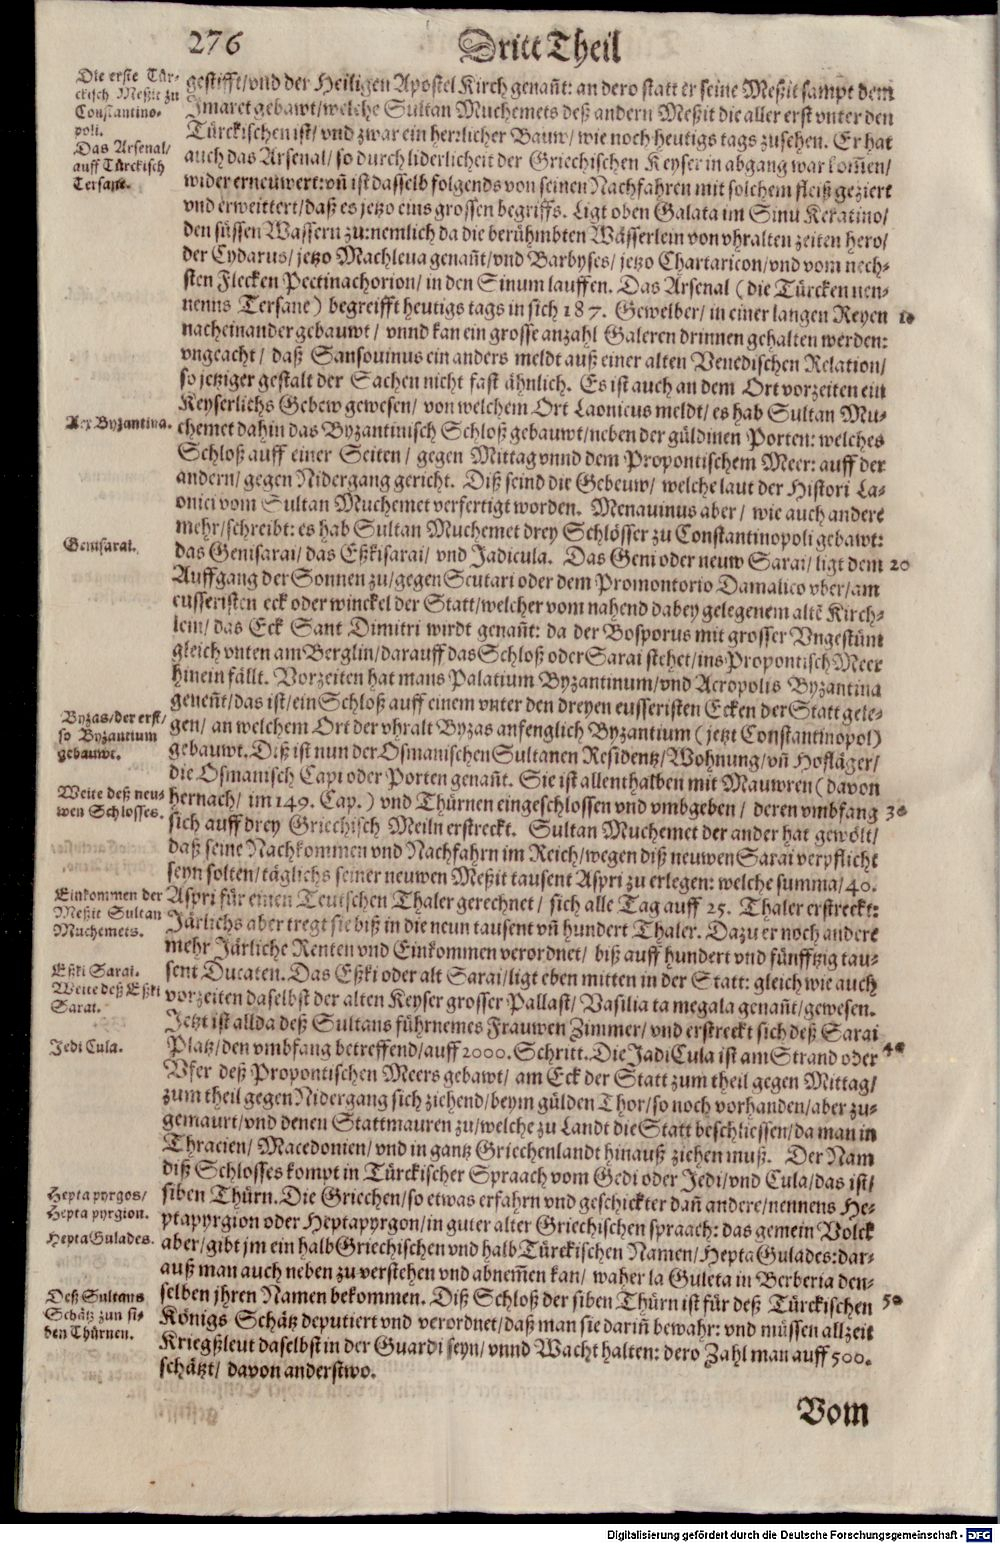 276
Dritt Theil
Die erste Tür-
ckisch Meßit zu
Constantino-
poli.
Das Arsenal/
auff Türckisch
Tersane.
gestifft/vnd der Heiligen Apostel Kirch genañt: an dero statt er seine Meßit sampt dem
Jmaret gebawt/welche Sultan Muchemets deß andern Meßit die aller erst vnter den
Türckischen ist/ vnd zwar ein herrlicher Bauw/ wie noch heutigs tags zusehen. Er hat
auch das Arsenal/ so durch liderlicheit der Griechischen Keyser in abgang war kom̃en/
wider erneuwert: vñ ist dasselb folgends von seinen Nachfahren mit solchem fleiß geziert
vnd erweittert/daß es jetzo eins grossen begriffs. Ligt oben Galata im Sinu Keratino/
den süssen Wassern zu: nemlich da die berühmbten Wässerlein von vhralten zeiten hero/
der Cydarus/ jetzo Machleua genañt/vnd Barbyses/ jetzo Chartaricon/vnd vom nech-
sten Flecken Pectinachorion/ in den Sinum lauffen. Das Arsenal (die Türcken nen-
nenns Tersane) begreifft heutigs tags in sich 187. Gewelber/ in einer langen Reyen 10
nacheinander gebauwt/ vnnd kan ein grosse anzahl Galeren drinnen gehalten werden:
vngeacht/ daß Sansouinus ein anders meldt auß einer alten Venedischen Relation/
so jetziger gestalt der Sachen nicht fast ähnlich. Es ist auch an dem Ort vorzeiten ein
Keyserlichs Gebew gewesen/ von welchem Ort Laonicus meldt/ es hab Sultan Mu-
Arx Byzantina.
chemet dahin das Byzantinisch Schloß gebauwt/neben der güldinen Porten: welches
Schloß auff einer Seiten/ gegen Mittag vnnd dem Propontischem Meer: auff der
andern/ gegen Nidergang gericht. Diß seind die Gebeuw/ welche laut der Histori La-
onici vom Sultan Muchemet verfertigt worden. Menauinus aber/ wie auch andere
mehr/schreibt: es hab Sultan Muchemet drey Schlösser zu Constantinopoli gebawt:
Genisarai.
das Genisarai/das Eßkisarai/ vnd Jadicula. Das Geni oder neuw Sarai/ ligt dem 20
Auffgang der Sonnen zu/gegen Scutari oder dem Promontorio Damalico vber/am
eusseristen eck oder winckel der Statt/welcher vom nahend dabey gelegenem altẽ Kirch-
lein/ das Eck Sant Dimitri wirdt genañt: da der Bosporus mit grosser Vngestüm
gleich vnten am Berglin/darauff das Schloß oder Sarai stehet/ins Propontisch Meer
hinein fällt. Vorzeiten hat mans Palatium Byzantinum/vnd Acropolis Byzantina
genennt/das ist/ein Schloß auff einem vnter den dreyen eusseristen Ecken der Statt gele-
Byzas/der erst/
so Byzantium
gebauwt.
gen/ an welchem Ort der vhralt Byzas anfenglich Byzantium (jetzt Constantinopol)
gebauwt. Diß ist nun der Osmanischen Sultanen Residentz/Wohnung/vñ Hofläger/
die Osmanisch Capi oder Porten genañt. Sie ist allenthalben mit Mauwren (davon
Weite deß neu-
wen Schlosses.
hernach/ im 149. Cap.) vnd Thürnen eingeschlossen vnd vmbgeben/ deren vmbfang 30
sich auff drey Griechisch Meiln erstreckt. Sultan Muchemet der ander hat gewölt/
daß seine Nachkommen vnd Nachfahrn im Reich/wegen diß neuwen Sarai verpflicht
seyn solten/täglichs seiner neuwen Meßit tausent Aspri zu erlegen: welche summa/ 40.
Einkommen der
Meßit Sultan
Muchemets.
Aspri für einen Teutschen Thaler gerechnet/ sich alle Tag auff 25. Thaler erstreckt:
Järlichs aber tregt sie biß in die neun tausent vñ hundert Thaler. Dazu er noch andere
mehr Järliche Renten vnd Einkommen verordnet/ biß auff hundert vnd fünfftzig tau-
Eßki Sarai.
Weite deß Eßki
Sarai.
sent Ducaten. Das Eßki oder alt Sarai/ligt eben mitten in der Statt: gleich wie auch
vorzeiten daselbst der alten Keyser grosser Pallast/ Vasilia ta megala genañt/gewesen.
Jetzt ist allda deß Sultans führnemes Frauwen Zimmer/ vnd erstreckt sich deß Sarai
Jedi Cula.
Platz/den vmbfang betreffend/auff 2000. Schritt. Die Jadi Cula ist am Strand oder 40
Vfer deß Propontischen Meers gebawt/ am Eck der Statt zum theil gegen Mittag/
zum theil gegen Nidergang sich ziehend/beym gülden Thor/so noch vorhanden/aber zu-
gemaurt/vnd denen Stattmauren zu/welche zu Landt die Statt beschliessen/da man in
Thracien/ Macedonien/ vnd in gantz Griechenlandt hinauß ziehen muß. Der Nam
diß Schlosses kompt in Türckischer Spraach vom Gedi oder Jedi/vnd Cula/das ist/
Hepta pyrgos/
Hepta pyrgion.
siben Thürn. Die Griechen/so etwas erfahrn vnd geschickter dañ andere/nennens He-
ptapyrgion oder Heptapyrgon/in guter alter Griechischen spraach: das gemein Volck
Hepta Gulades.
aber/gibt jm ein halb Griechischen vnd halb Türckischen Namen/ Hepta Gulades: dar-
auß man auch neben zu verstehen vnd abnem̃en kan/ waher la Guleta in Berberia den-
Deß Sultans
Schätz zun si-
ben Thürnen.
selben jhren Namen bekommen. Diß Schloß der siben Thürn ist für deß Türckischen 50
Königs Schätz deputiert vnd verordnet/daß man sie dariñ bewahr: vnd müssen allzeit
Kriegßleut daselbst in der Guardi seyn/ vnnd Wacht halten: dero Zahl man auff 500.
schätzt/ davon anderstwo.
Vom
Digitalisierung gefördert durch die Deutsche Forschungsgemeinschaft - DFG